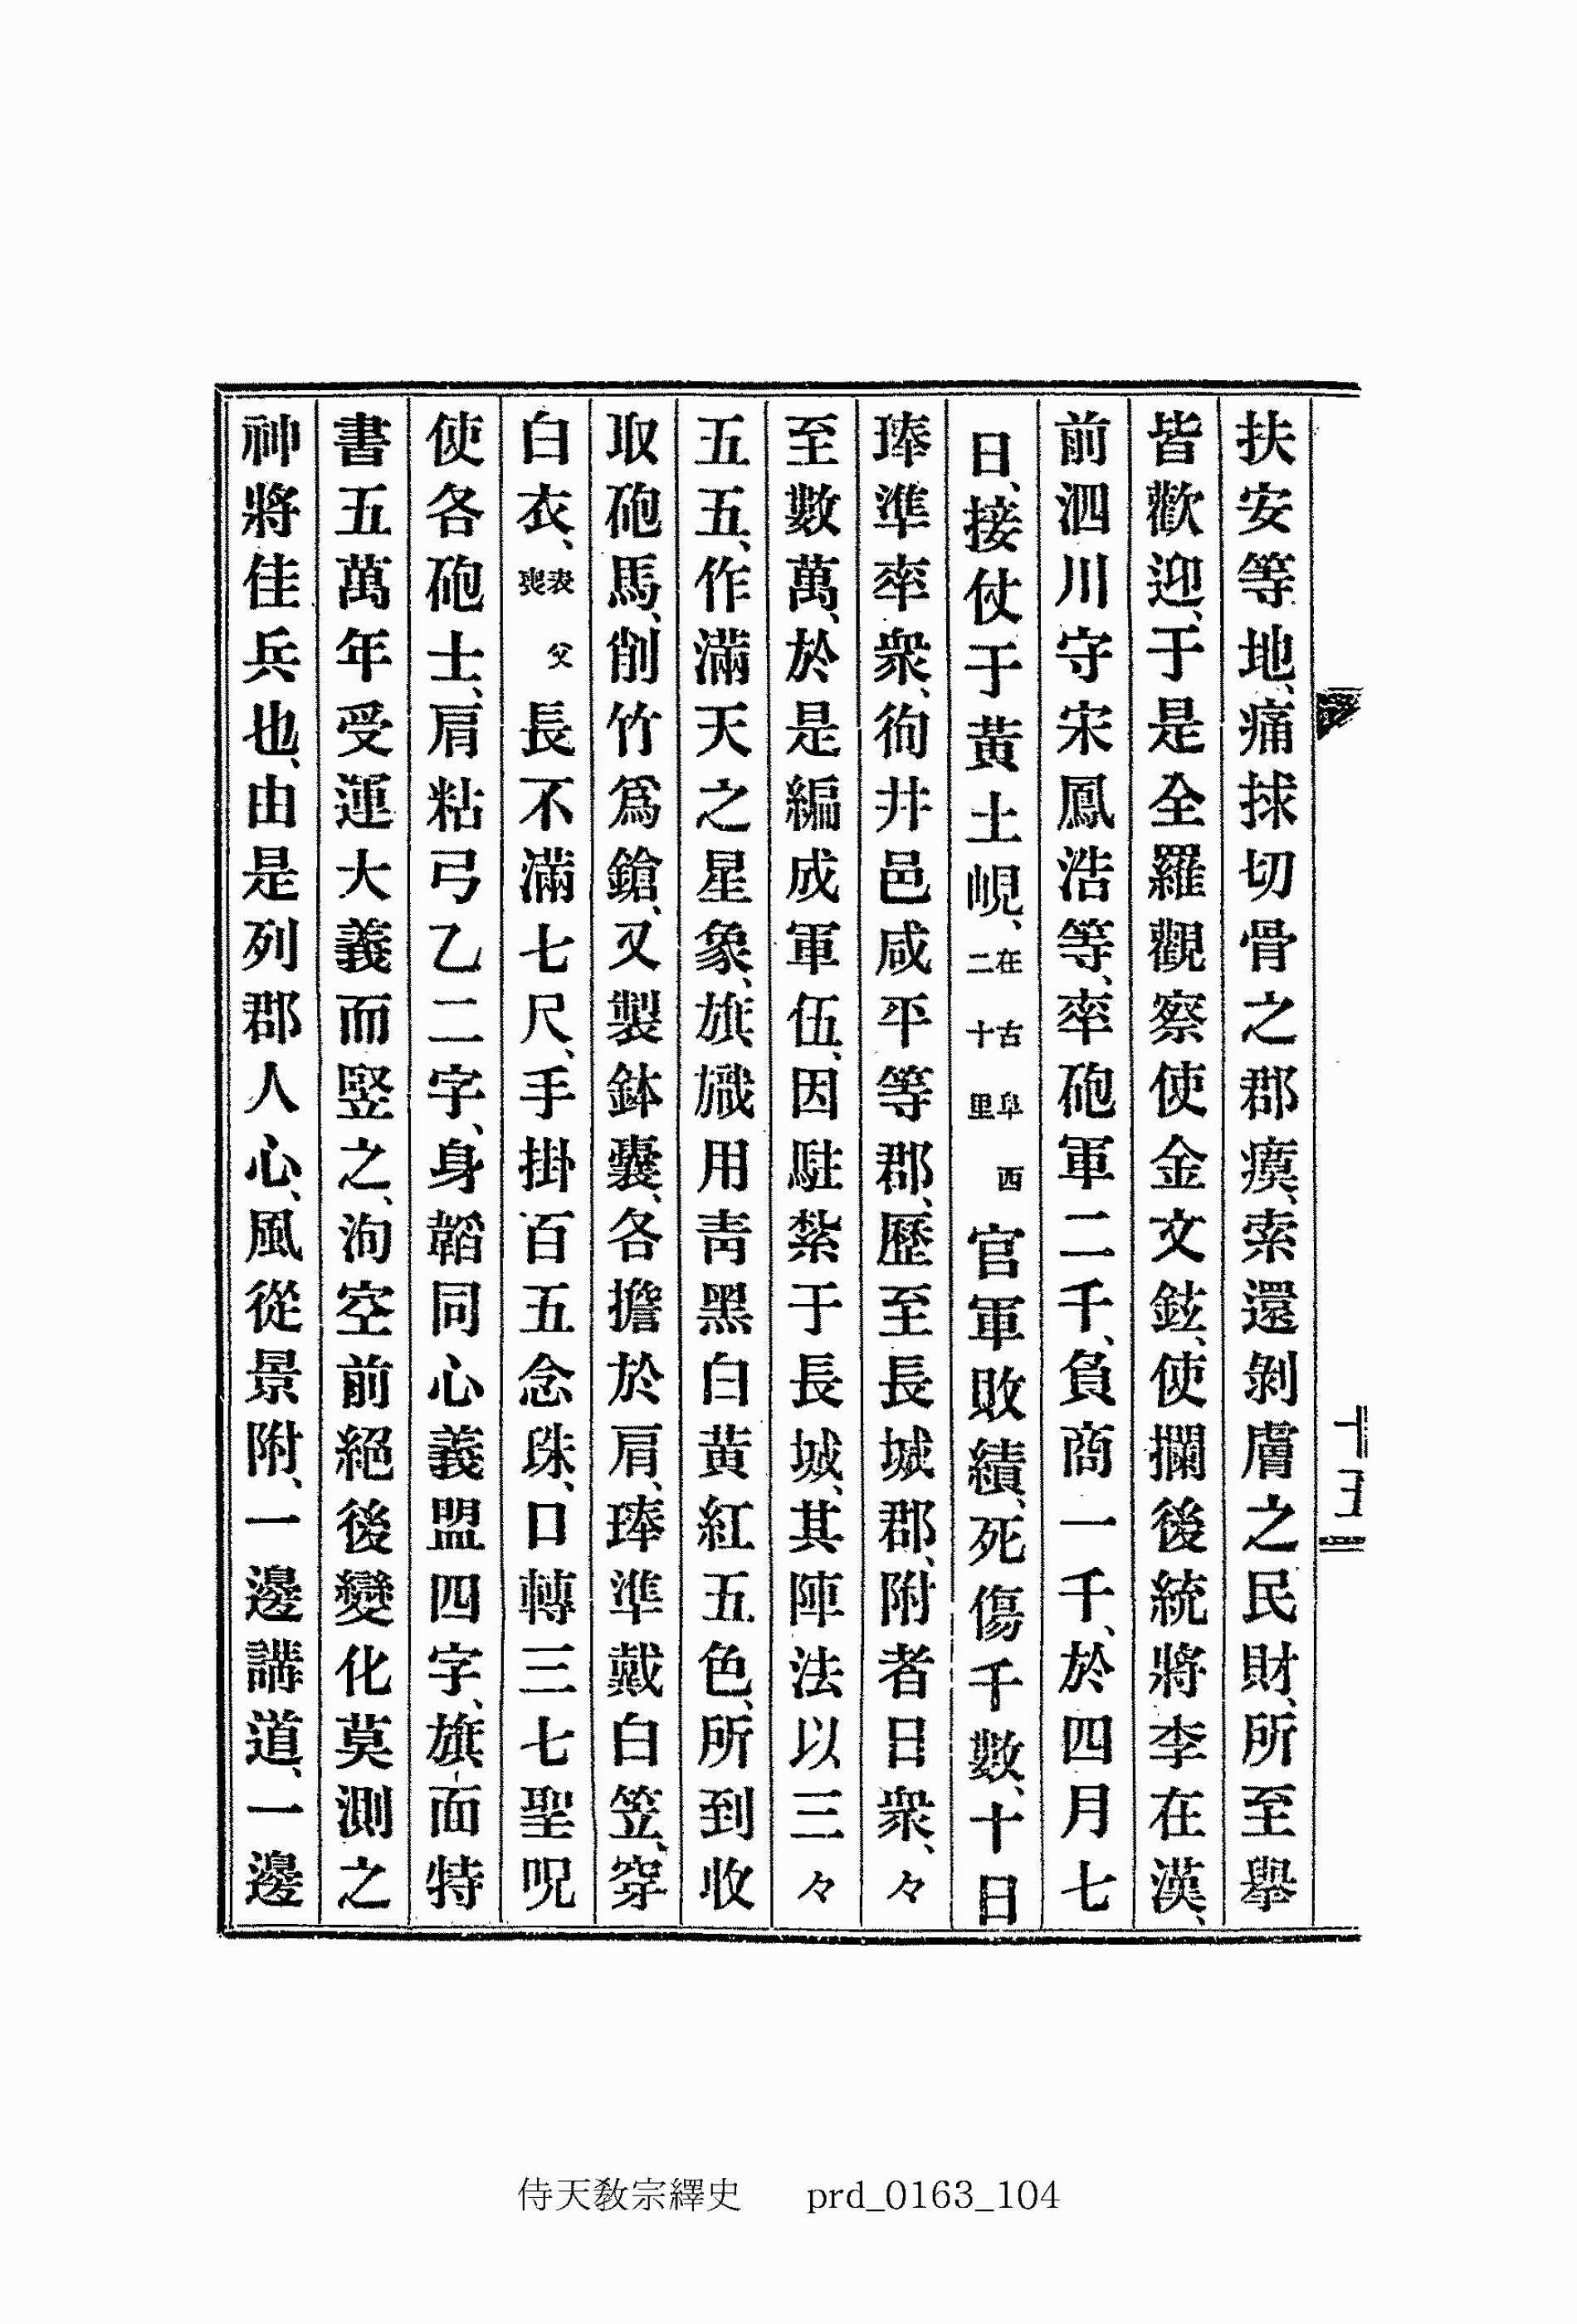 扶安等地、痛捄切骨之郡瘼、索還剝膚之民財、所至擧
皆歡迎、于是全羅觀察使金文鉉、使攔後統將李在漢、
前泗川守宋鳳浩等、率砲軍二千、負商一千、於四月七
日、接仗于黃土峴、在古阜西二十里官軍敗績、死傷千數、十日
琫準率衆、徇井邑咸平等郡、歷至長城郡、附者日衆、々
至數萬、於是編成軍伍、因駐紮于長城、其陣法以三々
五五、作滿天之星象、旗幟用靑黑白黃紅五色、所到收
取砲馬、削竹爲鎗、又製鉢囊、各擔於肩、琫準戴白笠、穿
白衣、衷父喪長不滿七尺、手掛百五念珠、口轉三七聖呪
使各砲士、肩粘弓乙二字、身韜同心義盟四字、旗面特
書五萬年受運大義而竪之、洵空前絕後變化莫測之
神將佳兵也、由是列郡人心、風從景附、一邊講道、一邊
十五
侍天敎宗繹史 prd_0163_104